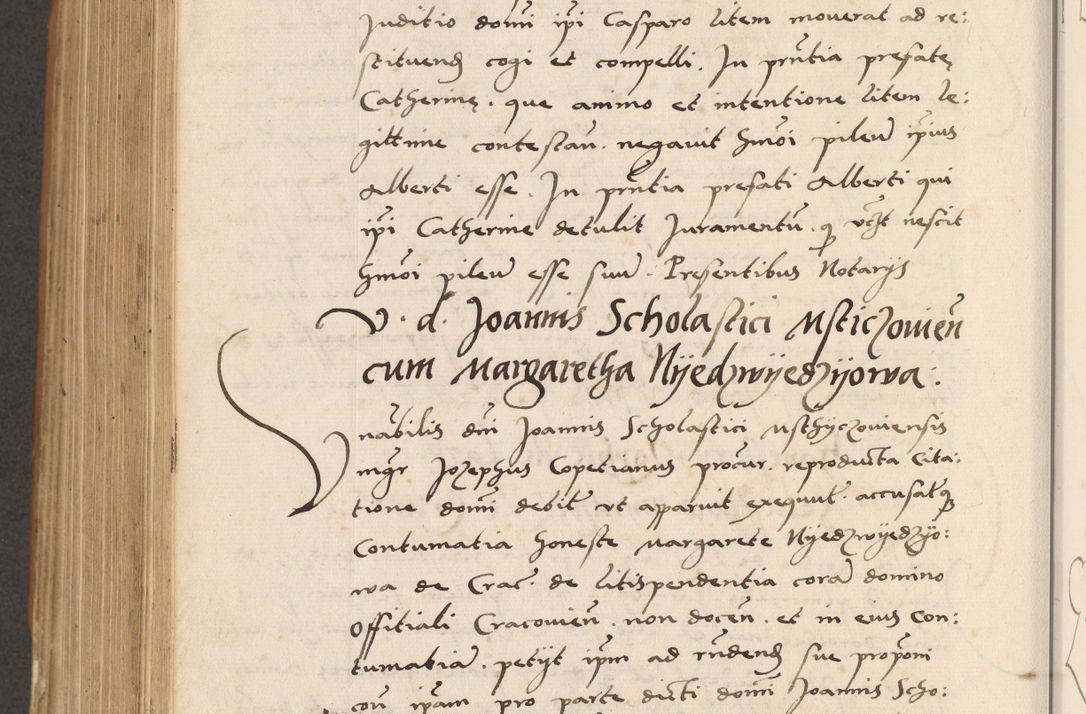 Juditio domi ipi Casparo litem mouerat ad re:
stituend cogi et compelli. In pntia prefatę
Catherinę. que animo et intentione litem le:
gittime contestan. negauit hmoi pileu ipius
Alberti esse. In pntia prefati Alberti qui
ipi Catherine detulit Juramentu. q nescit
hmoi pileu esse suu. Presentibus Notarijs
V. d. Joannis Scholastici Usticzouien
cum Margaretha Nyedzwyedzyowa.
Vnabilis dni Joannis Scholastici Usthyczouiensis
mgr Jozephus Copetianus procur. reproducta Cita:
tione domi debit vt apparuit exequut. accusatq
Contumatia honeste Margarete Nyedzwyedzyo:
wa de Crac. de litispendentia cora domino
Offitiali Cracouien. non docen. et in eius Con:
tumatia. petijt ipm ad rndend sue proponi
con ipam pro parte dicti domi Joannis Scho: